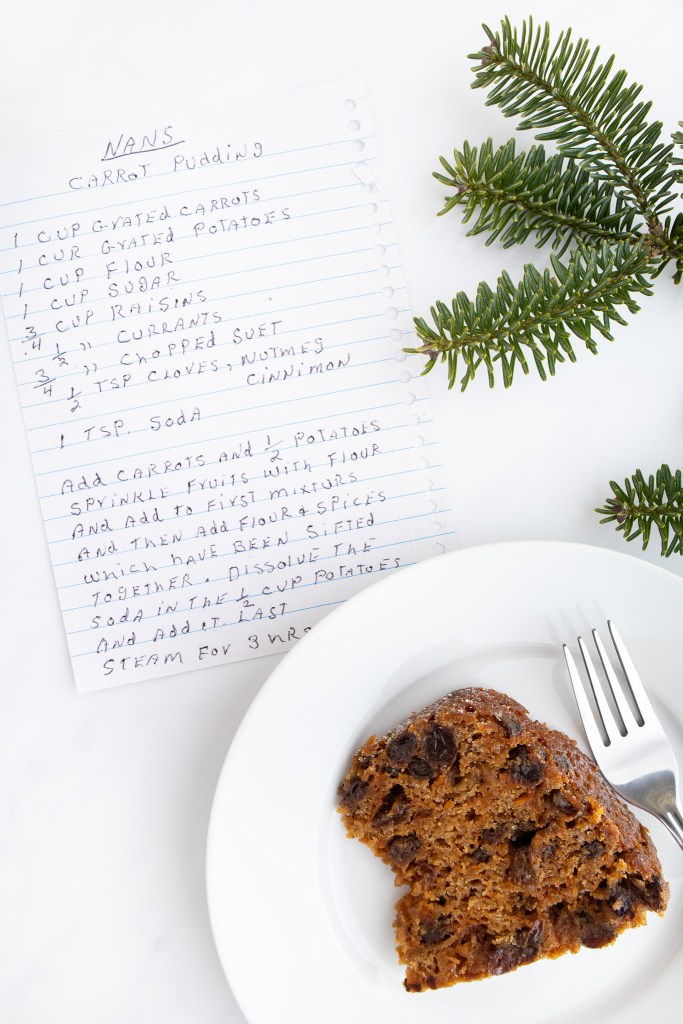 NANS
CARROT PUDDING
1 CUP GRATED CARROTS
1 CUR GRATED POTATOES
1 CUP FLOUR
1 CUP SUGAR
3/4 CUP RAISINS
1/2 " CURRANTS
3/4 " CHOPPED SUET
1/2 TSP CLOVES, NUTMEG
CINNIMON
1 TSP. SODA
ADD CARROTS AND 1/2 POTATOES
SPRINKLE FRUITS WITH FLOUR
AND ADD TO FIRST MIXTURS
AND THEN ADD FLOUR & SPICES
WHICH HAVE BEEN SIFTED
TOGETHER. DISSOLVE THE
SODA IN THE 1/2 CUP POTATOES
AND ADD IT. LAST
STEAM FOR 3 HRS